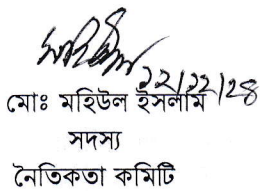 ১২/১২/২৪
মোঃ মহিউল ইসলাম
সদস্য
নৈতিকতা কমিটি